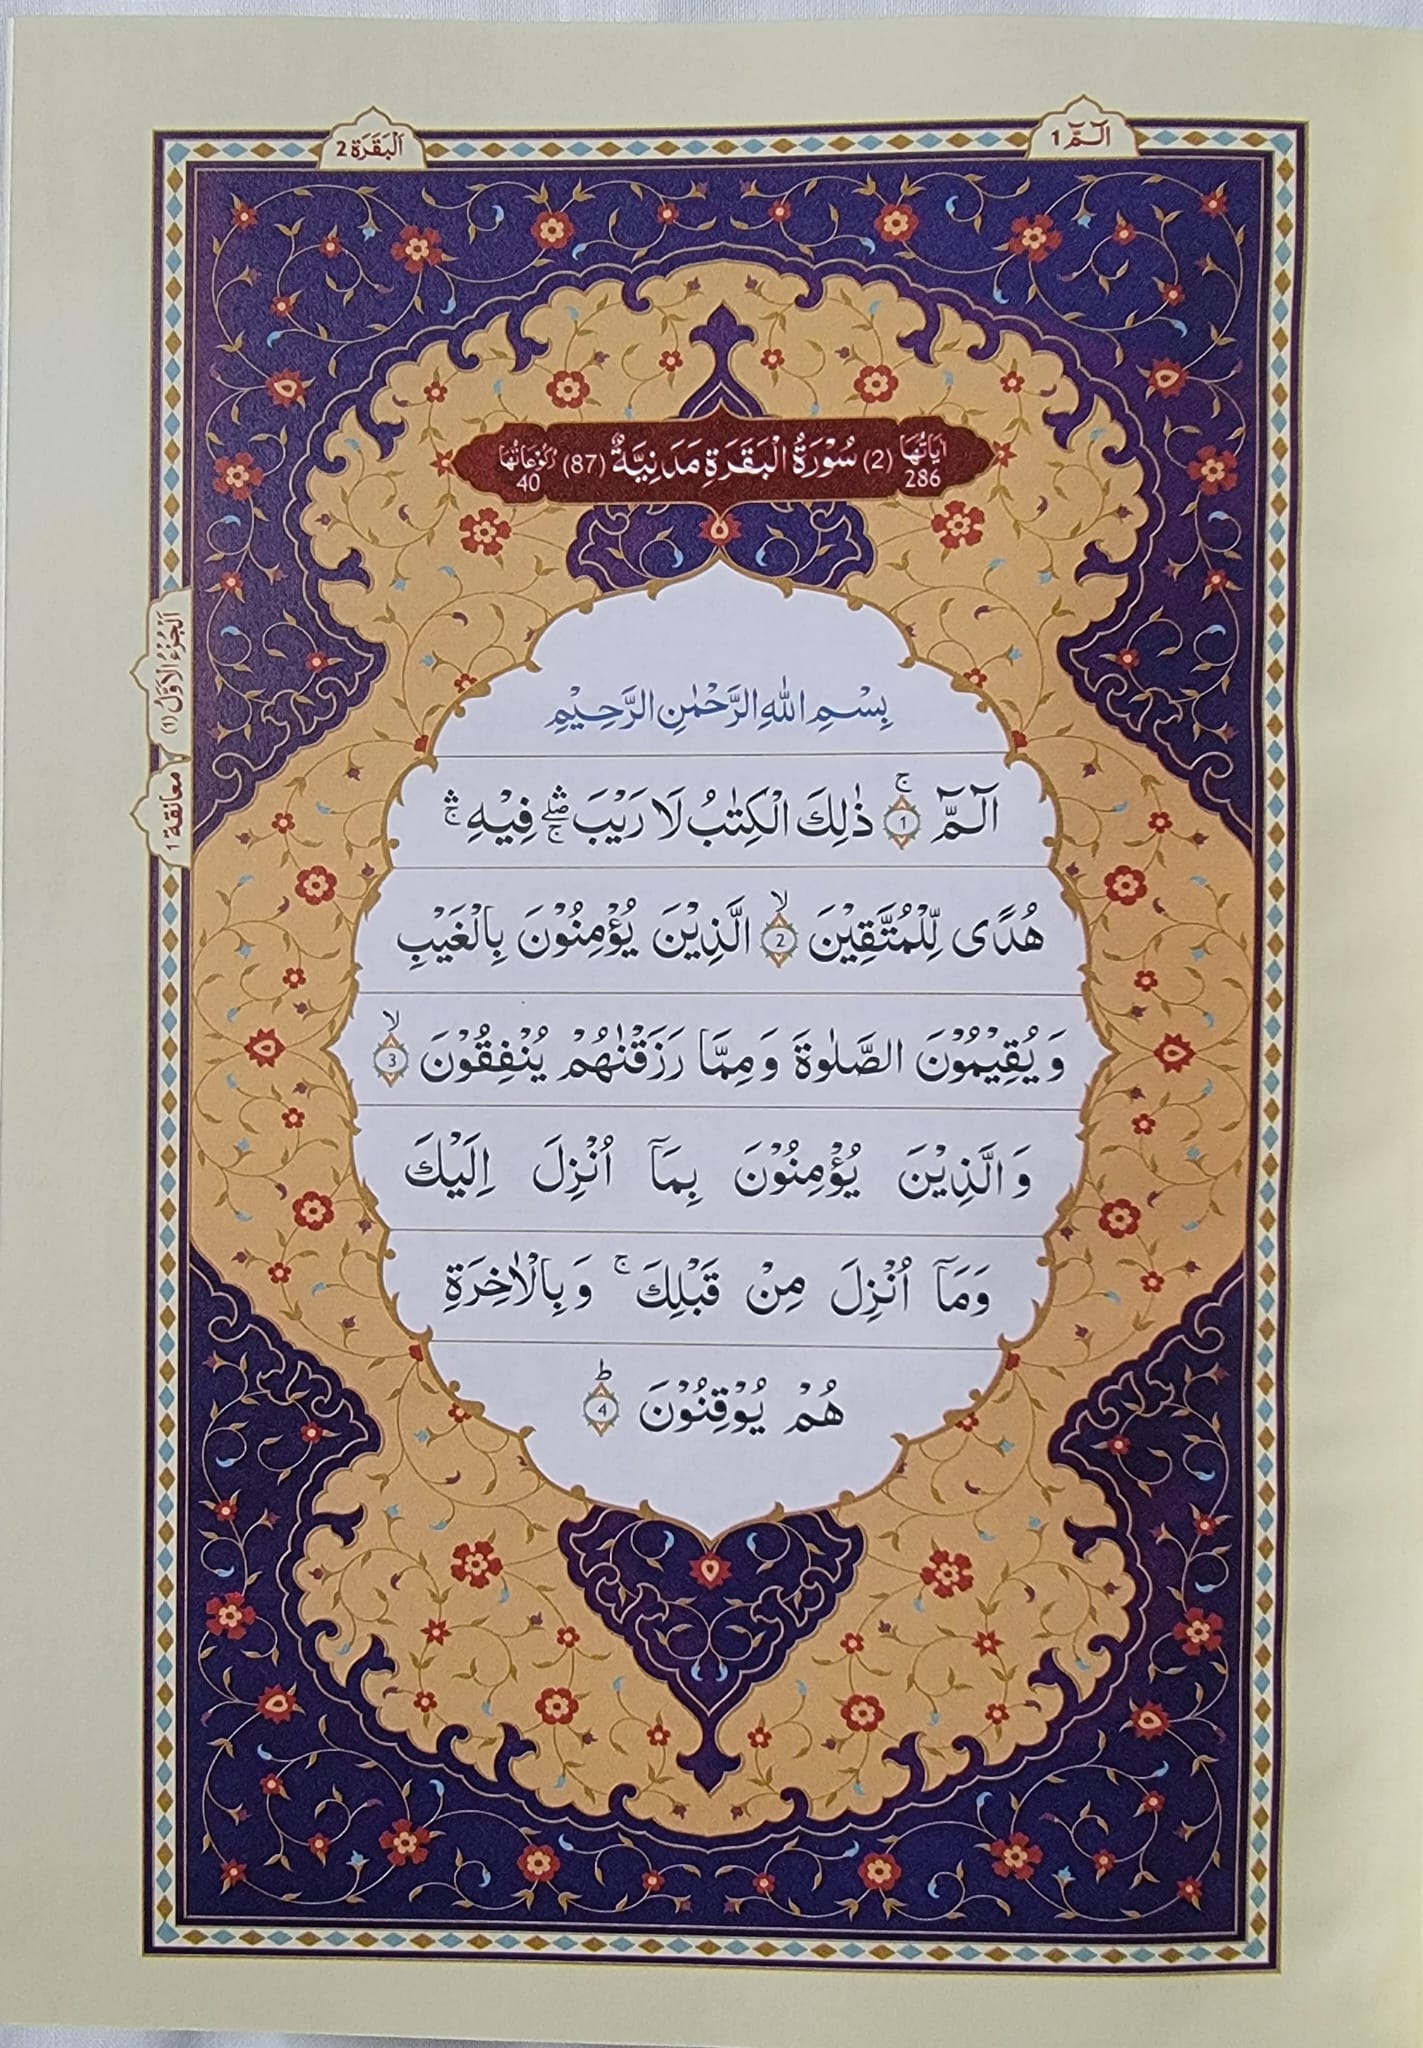 الٓمّٓ 1
اَلْبَقَرَة 2
اٰيَاتُهَا 286
(2) سُوْرَةُ الْبَقَرَةِ مَدَنِيَّةٌ (87)
رُكُوْعَاتُهَا 40
بِسْمِ اللّٰهِ الرَّحْمٰنِ الرَّحِيْمِ
الٓمّٓ ۚ 1 ذٰلِكَ الْكِتٰبُ لَا رَيْبَ ۛۖۚ فِيْهِ ۛۚ
هُدًى لِّلْمُتَّقِيْنَ ۙ 2 الَّذِيْنَ يُؤْمِنُوْنَ بِالْغَيْبِ
وَيُقِيْمُوْنَ الصَّلٰوةَ وَمِمَّا رَزَقْنٰهُمْ يُنْفِقُوْنَ ۙ 3
وَالَّذِيْنَ يُؤْمِنُوْنَ بِمَآ اُنْزِلَ اِلَيْكَ
وَمَآ اُنْزِلَ مِنْ قَبْلِكَ ۚ وَبِالْاٰخِرَةِ
هُمْ يُوْقِنُوْنَ ؕ 4
اَلْجُزْءُ الْاَوَّلُ (1)
معانقة 1